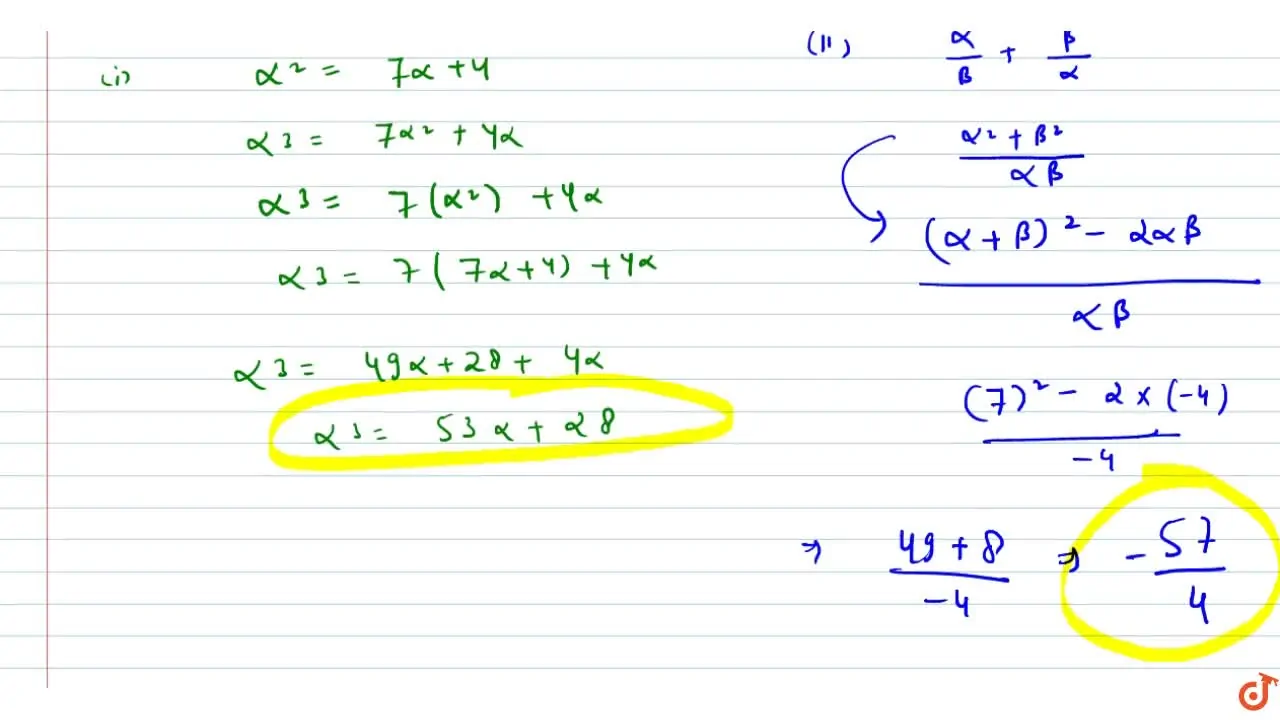 (i) α² = 7α + 4
α3 = 7α² + 4α
α3 = 7(α²) + 4α
α3 = 7(7α+4) + 4α
α3 = 49α + 28 + 4α
α3 = 53α + 28
(II) α/β + β/α
α² + β²/αβ
(α + β)² - 2αβ/αβ
(7)² - 2 × (-4)/-4
⇒ 49 + 8/-4 ⇒ -57/4